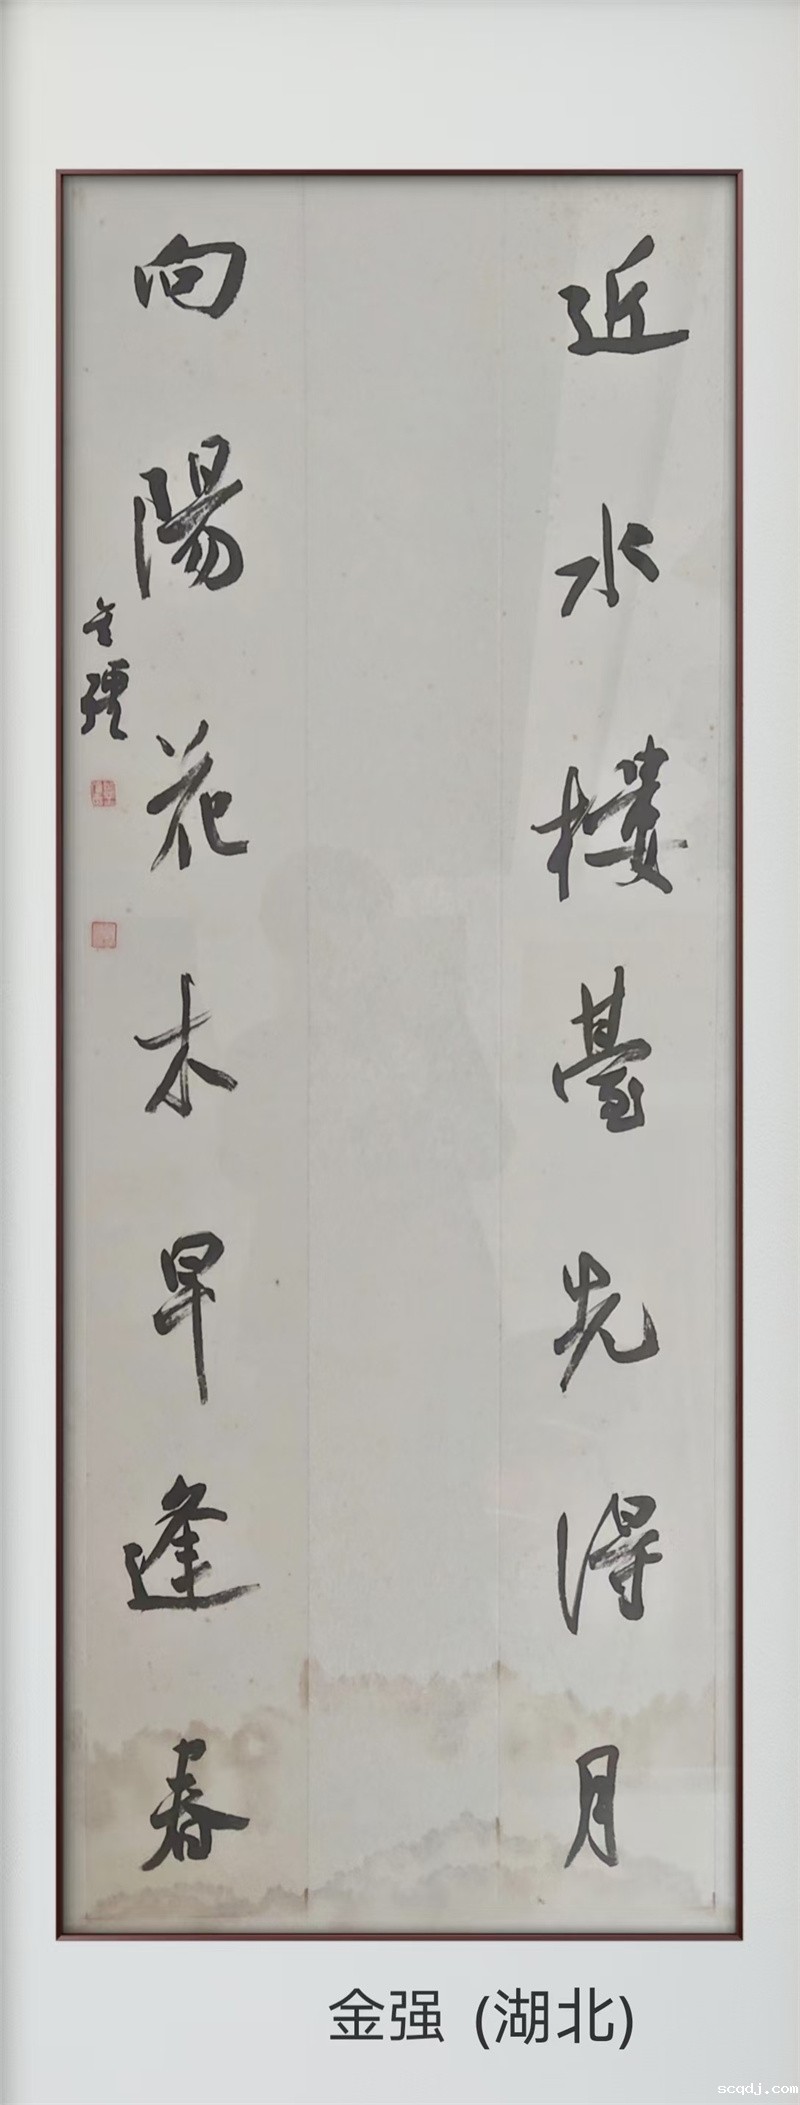 近水楼臺先得月
向陽花木早逢春
金强
金强 (湖北)
scqdj.com